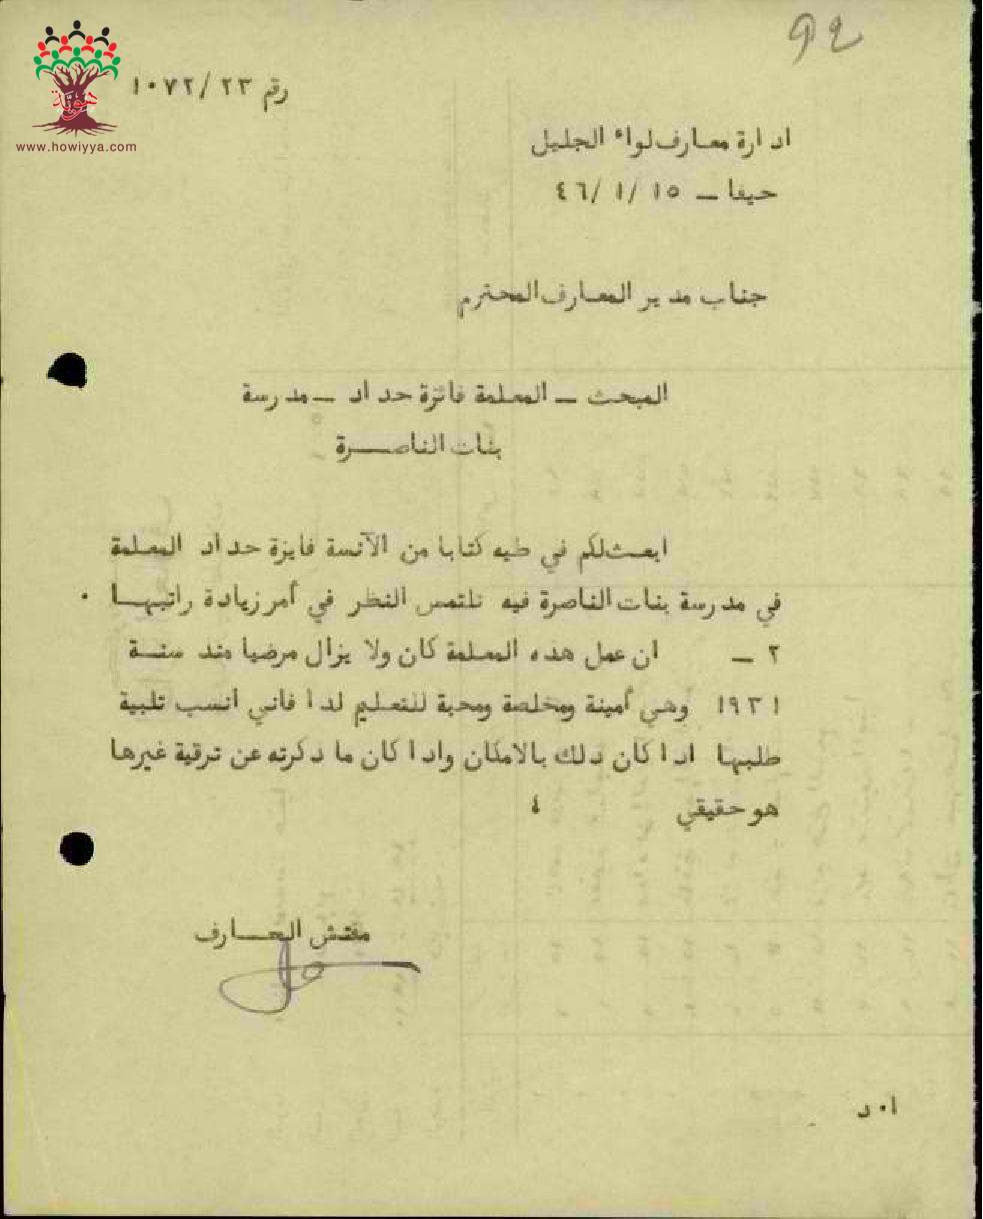 92
هوية
www.howiyya.com
رقم ٢٣/ ١٠٧٢
ادارة معارف لواء الجليل
حيفا – ١٥ /١ /٤٦
جناب مدير المعارف المحترم
المبحث – المعلمة فائزة حداد – مدرسة
بنات الناصرة
ابعث لكم في طيه كتابا من الآنسة فايزة حداد المعلمة
في مدرسة بنات الناصرة فيه تلتمس النظر في أمر زيادة راتبها .
٢ – ان عمل هذه المعلمة كان ولا يزال مرضيا منذ سنة
١٩٣١ وهي أمينة ومخلصة ومحبة للتعليم لذا فاني انسب تلبية
طلبها اذا كان ذلك بالامكان واذا كان ما ذكرته عن ترقية غيرها
هو حقيقي ٤
مفتش المعارف
ا٠ د